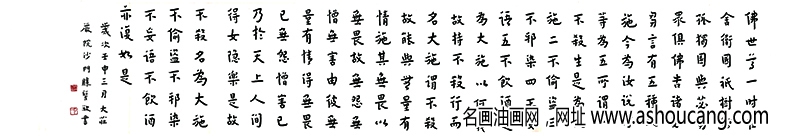 佛世尊一時在
舍衛國祇樹給
孤獨園與苾芻
眾俱佛告諸苾
芻言有五種大
施今為汝說何
等為五所謂一
不殺生是為大
施二不偷盜三
不邪染四不妄
語五不飲酒是
為大施以何義
故持不殺行而
名大施謂不殺
故能與無量有
情施其無畏以
無畏故無怨無
憎無害由彼無
量有情得無畏
已無怨憎害已
乃於天上人間
得安隱樂是故
不殺名為大施
不偷盜不邪染
不妄語不飲酒
亦復如是
歲次壬申三月大莊
嚴院沙門勝髻敬書
名画油画网，网址 www.ashoucang.com